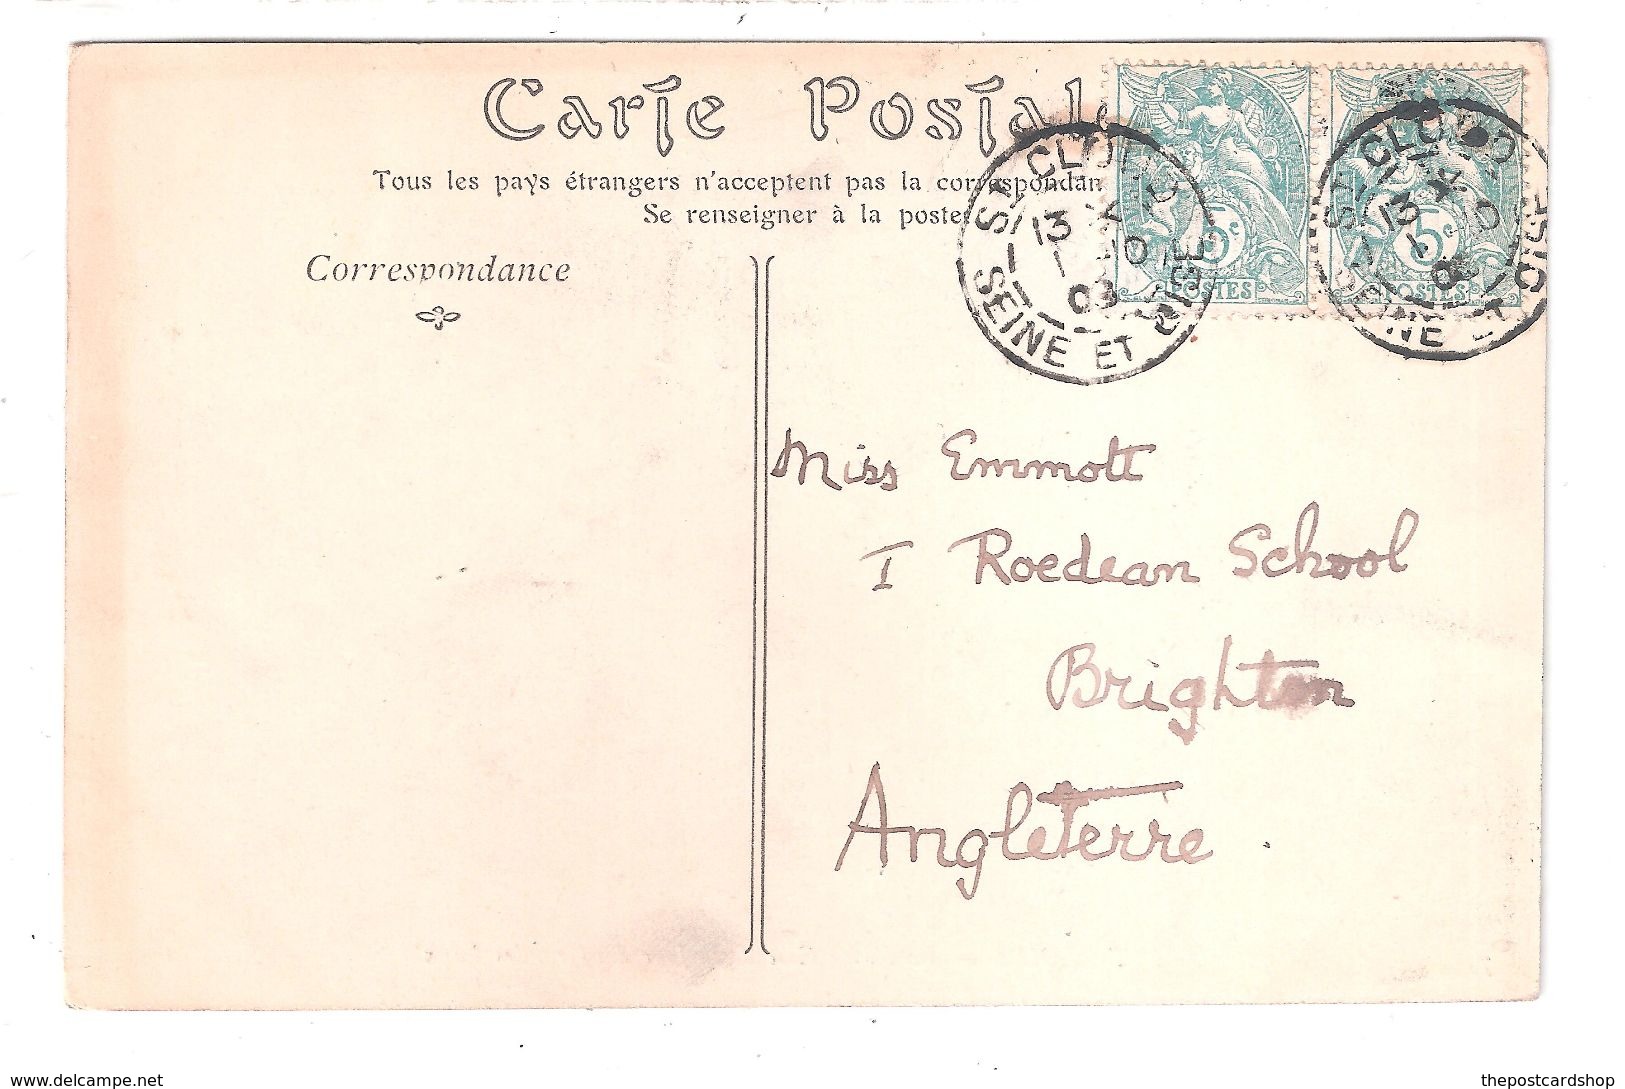 Carte Postale
Tous les pays étrangers n'acceptent pas la correspondan
Se renseigner à la poste
Correspondance
ST CLOUD
13
1
03
SEINE ET OISE
5c
POSTES
ST CLOUD
13
1
SEINE ET OISE
5c
POSTES
Miss Emmott
I Roedean School
Brighton
Angleterre.
delcampe.net
thepostcardshop